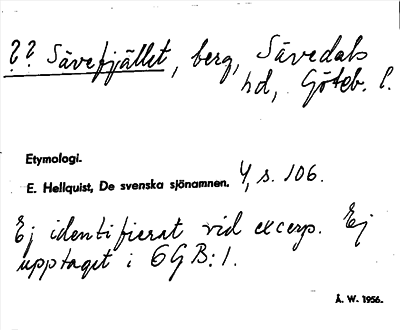 ?? Sävefjället, berg, Sävedals
hd, Göteb. l.
Etymologi.
E. Hellquist, De svenska sjönamnen. 4, s. 106.
Ej identifierat vid excerp. Ej
upptaget i OGB:1.
Å. W. 1956.